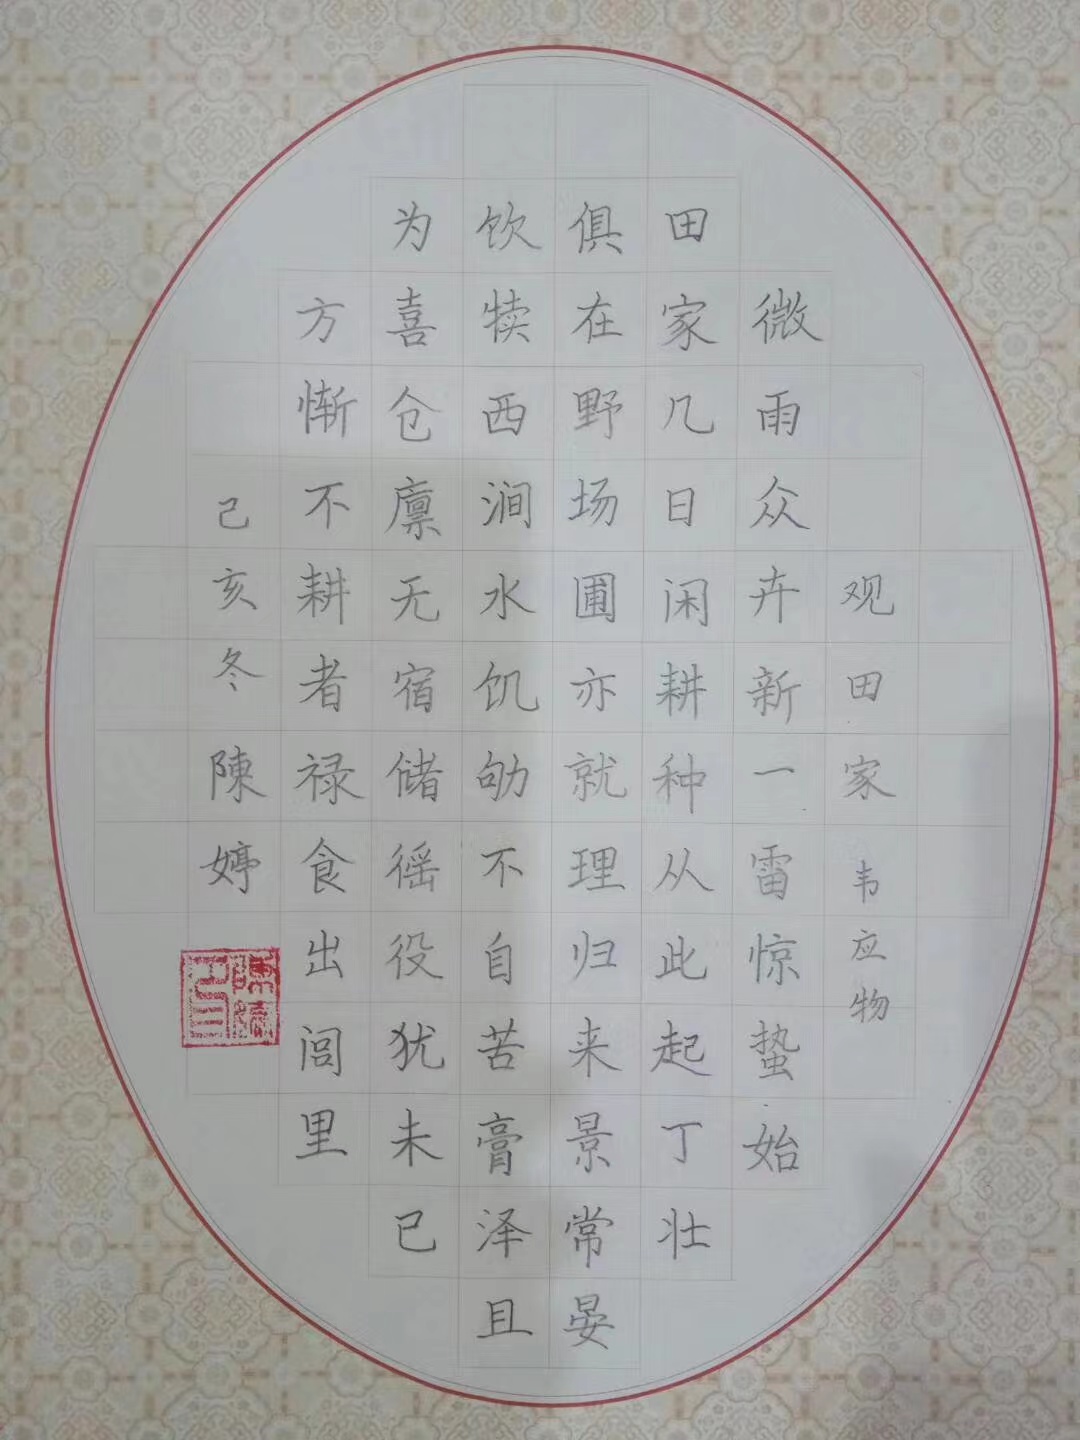 观田家 韦应物
微雨众卉新一雷惊蛰始
田家几日闲耕种从此起丁壮
俱在野场圃亦就理归来景常晏
饮犊西涧水饥劬不自苦膏泽且
为喜仓廪无宿储徭役犹未已
方惭不耕者禄食出闾里
己亥冬陳婷